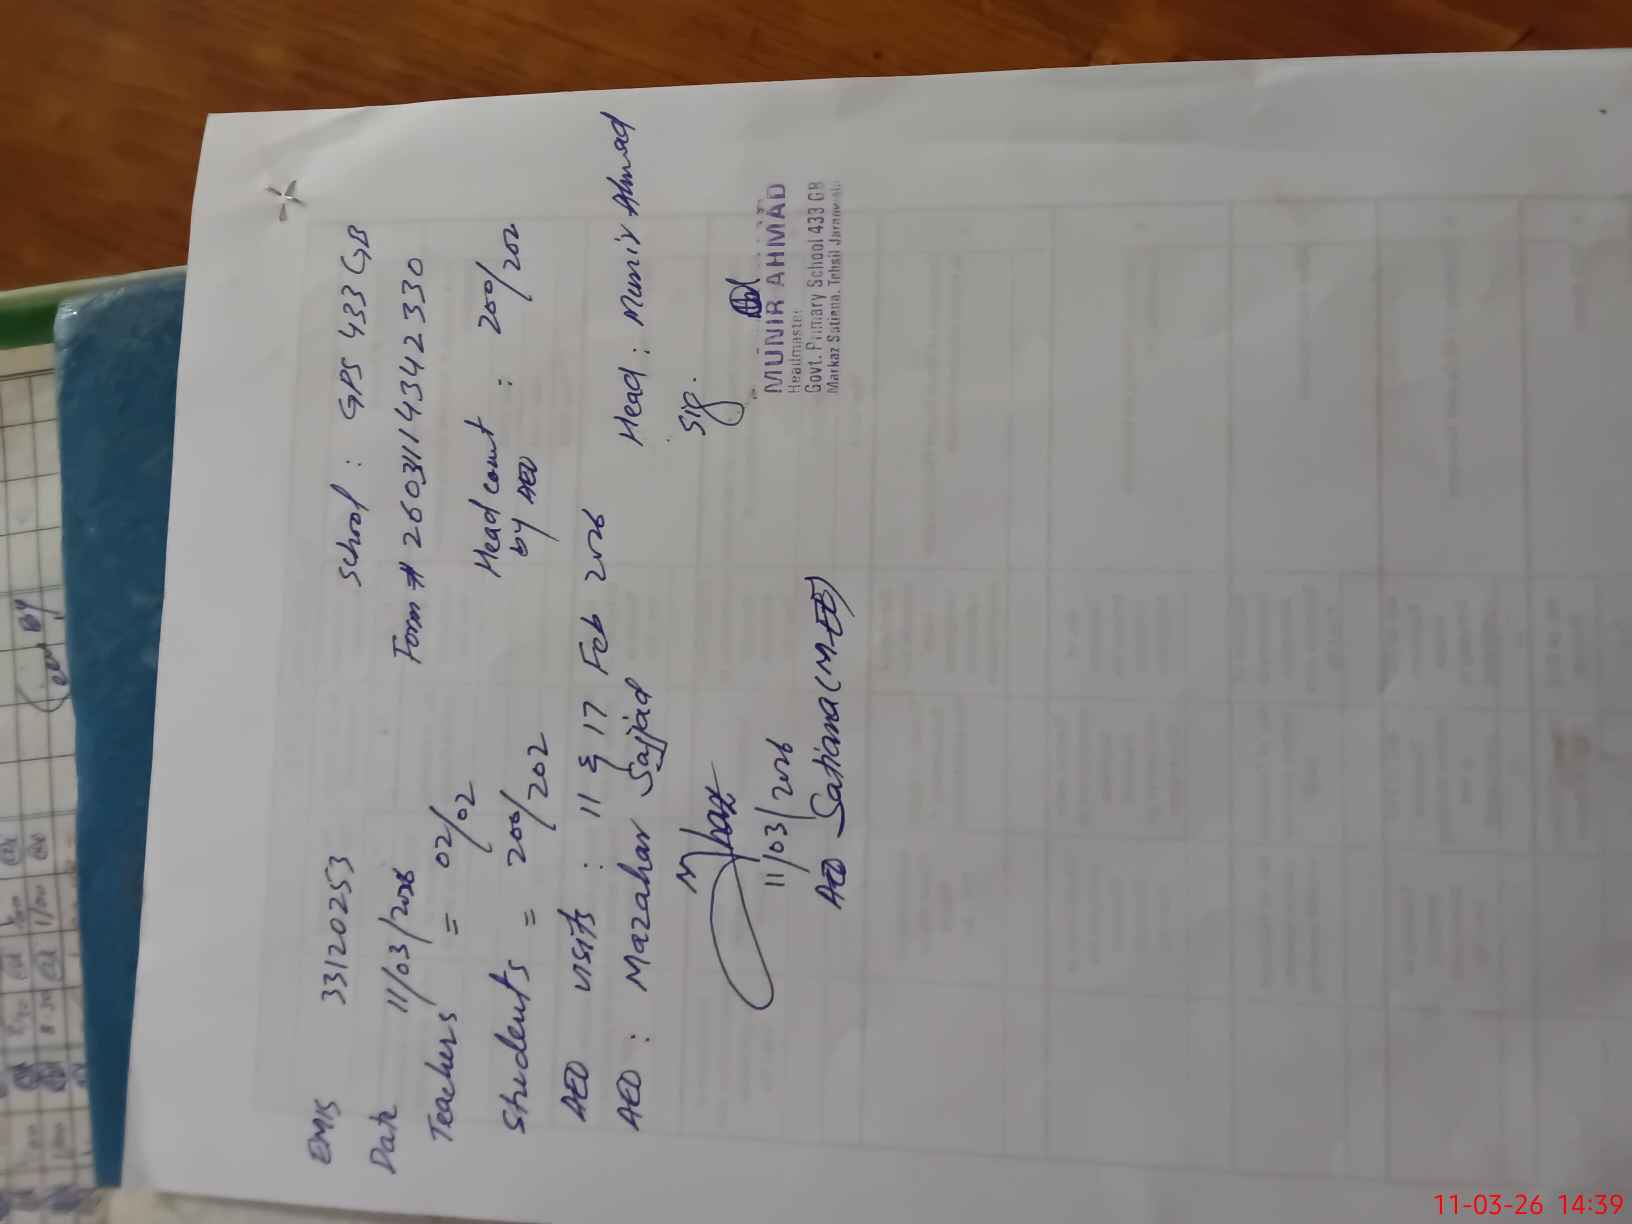 EMIS 33120253 School : GPS 433 GB
Date 11/03/2026 Form # 260311143342330
Teachers = 02/02
Students = 200/202 Head count by AEO : 200/202
AEO visits : 11 & 17 Feb 2026
AEO : Mazahar Sajjad Head : Munir Ahmad
Sig.
11/03/2026
AEO Satiana (M-EE)
MUNIR AHMAD
Headmaster
Govt. Primary School 433 GB
Markaz Satiana, Tehsil Jaranwala
11-03-26 14:39